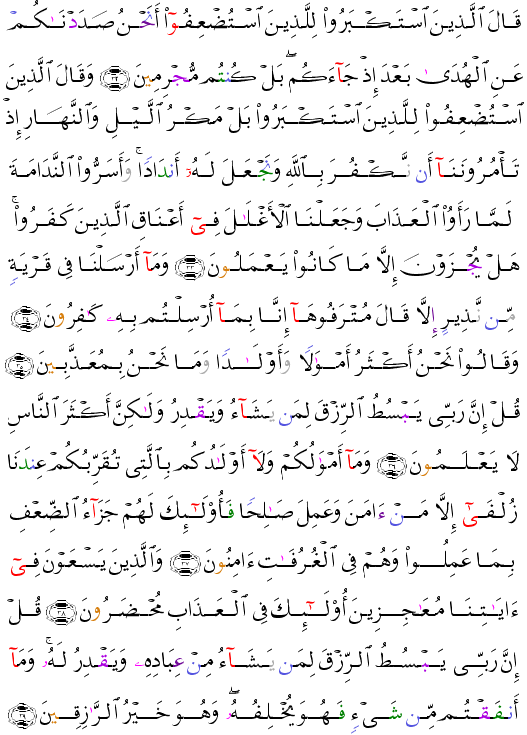 قَالَ الَّذِينَ اسْتَكْبَرُوا۟ لِلَّذِينَ اسْتُضْعِفُوٓا۟ أَنَحْنُ صَدَدْنَـٰكُمْ
عَنِ الْهُدَىٰ بَعْدَ إِذْ جَآءَكُم ۖ بَلْ كُنتُم مُّجْرِمِينَ ﴿٣٢﴾ وَقَالَ الَّذِينَ
اسْتُضْعِفُوا۟ لِلَّذِينَ اسْتَكْبَرُوا۟ بَلْ مَكْرُ الَّيْلِ وَالنَّهَارِ إِذْ
تَأْمُرُونَنَآ أَن نَّكْفُرَ بِاللَّهِ وَنَجْعَلَ لَهُۥٓ أَندَادًا ۚ وَأَسَرُّوا۟ النَّدَامَةَ
لَمَّا رَأَوُا۟ الْعَذَابَ وَجَعَلْنَا الْأَغْلَـٰلَ فِىٓ أَعْنَاقِ الَّذِينَ كَفَرُوا۟ ۚ
هَلْ يُجْزَوْنَ إِلَّا مَا كَانُوا۟ يَعْمَلُونَ ﴿٣٣﴾ وَمَآ أَرْسَلْنَا فِى قَرْيَةٍ
مِّن نَّذِيرٍ إِلَّا قَالَ مُتْرَفُوهَآ إِنَّا بِمَآ أُرْسِلْتُم بِهِۦ كَـٰفِرُونَ ﴿٣٤﴾
وَقَالُوا۟ نَحْنُ أَكْثَرُ أَمْوَٰلًا وَأَوْلَـٰدًا وَمَا نَحْنُ بِمُعَذَّبِينَ ﴿٣٥﴾
قُلْ إِنَّ رَبِّى يَبْسُطُ الرِّزْقَ لِمَن يَشَآءُ وَيَقْدِرُ وَلَـٰكِنَّ أَكْثَرَ النَّاسِ
لَا يَعْلَمُونَ ﴿٣٦﴾ وَمَآ أَمْوَٰلُكُمْ وَلَآ أَوْلَـٰدُكُم بِالَّتِى تُقَرِّبُكُمْ عِندَنَا
زُلْفَىٰٓ إِلَّا مَنْ ءَامَنَ وَعَمِلَ صَـٰلِحًا فَأُو۟لَـٰٓئِكَ لَهُمْ جَزَآءُ الضِّعْفِ
بِمَا عَمِلُوا۟ وَهُمْ فِى الْغُرُفَـٰتِ ءَامِنُونَ ﴿٣٧﴾ وَالَّذِينَ يَسْعَوْنَ فِىٓ
ءَايَـٰتِنَا مُعَـٰجِزِينَ أُو۟لَـٰٓئِكَ فِى الْعَذَابِ مُحْضَرُونَ ﴿٣٨﴾ قُلْ
إِنَّ رَبِّى يَبْسُطُ الرِّزْقَ لِمَن يَشَآءُ مِنْ عِبَادِهِۦ وَيَقْدِرُ لَهُۥ ۚ وَمَآ
أَنفَقْتُم مِّن شَىْءٍ فَهُوَ يُخْلِفُهُۥ ۖ وَهُوَ خَيْرُ الرَّٰزِقِينَ ﴿٣٩﴾